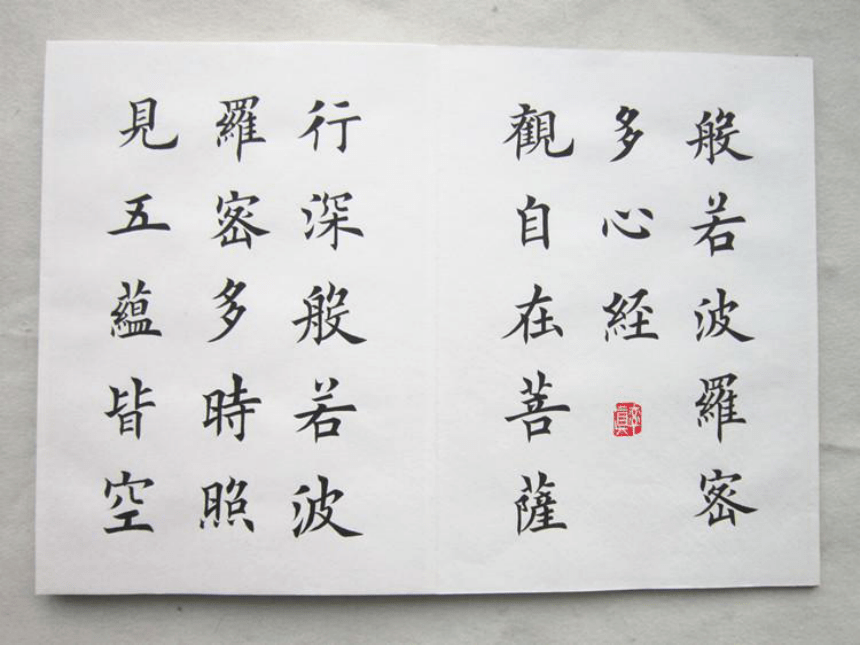 般若波羅密
多心経
率真
觀自在菩薩
行深般若波
羅密多時照
見五蘊皆空